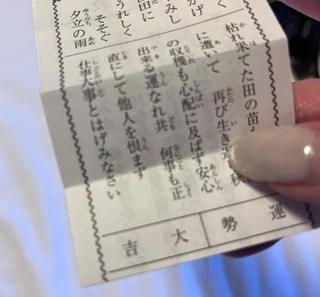 く
かげ
みし
田に
うれしく
そそぐ
夕立の雨
枯れ果てた田の苗
に遭いて 再び生き
の収穫も心配に及ばず安心
出来る運なれ共 何事も正
直にして他人を恨まず
仕事大事とはげみなさい
運勢
大吉